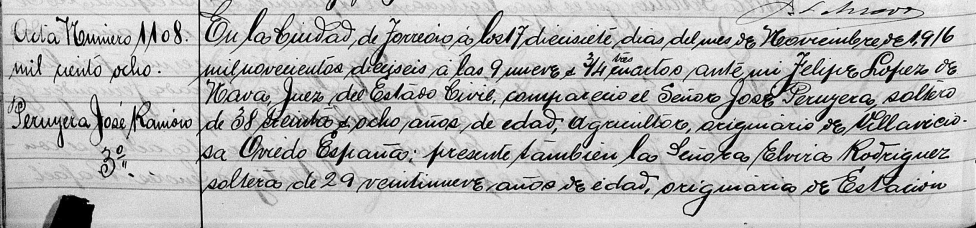 Acta Número 1108.
mil ciento ocho.
Peruyera José Ramón
3º
En la Ciudad de Torreón á los 17 diecisiete, días del mes de Noviembre de 1916
mil novecientos dieciseis á las 9 nueve y 3/4 tres cuartos ante mi Felipe López de
Nava, Juez del Estado Civil, compareció el Señor José Peruyera, soltero
de 38 treinta y ocho años de edad, agricultor, originario de Villavicio-
sa Oviedo España; presente también la Señora Elvira Rodriguez
soltera de 29 veintinueve, años de edad, originaria de Estación